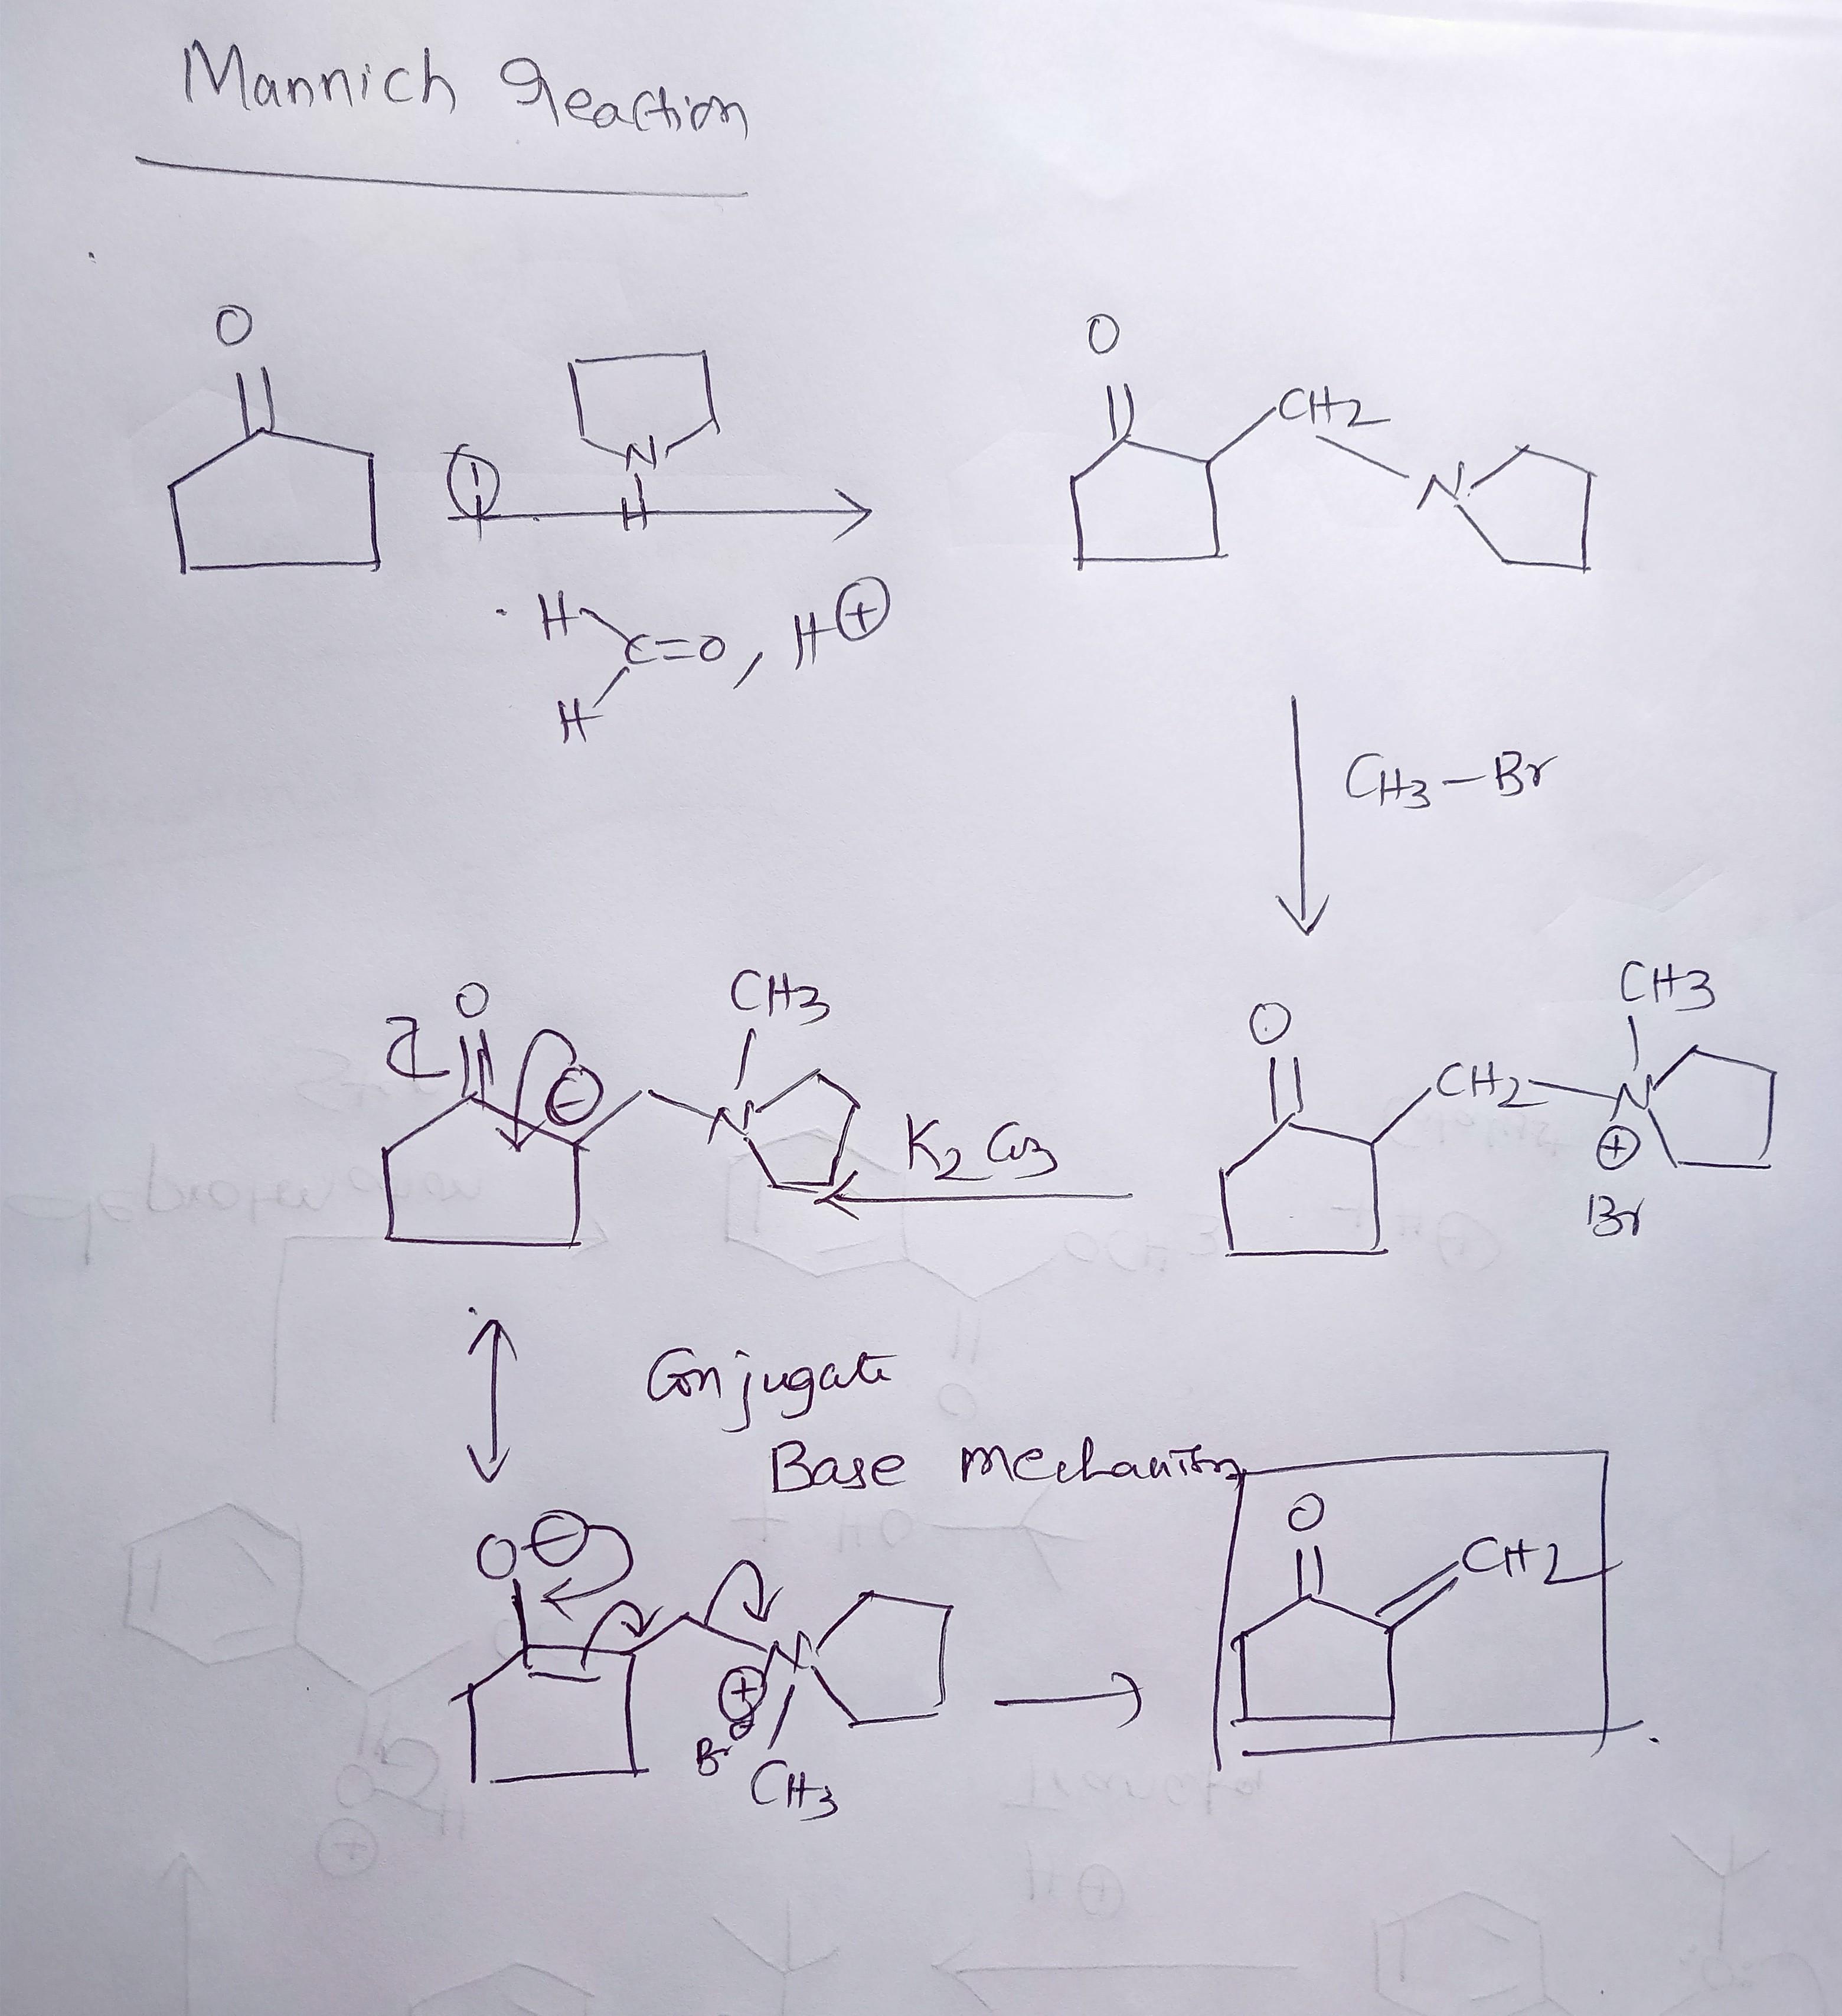 Mannich Reaction
O
N
H
H
C=O, H⊕
H
O
CH2
N
CH3-Br
O
CH3
CH2
N
⊕
Br
K2CO3
O
CH3
⊖
N
Conjugate
Base mechanism
O⊖
N
⊕
⊖
Br
CH3
O
CH2